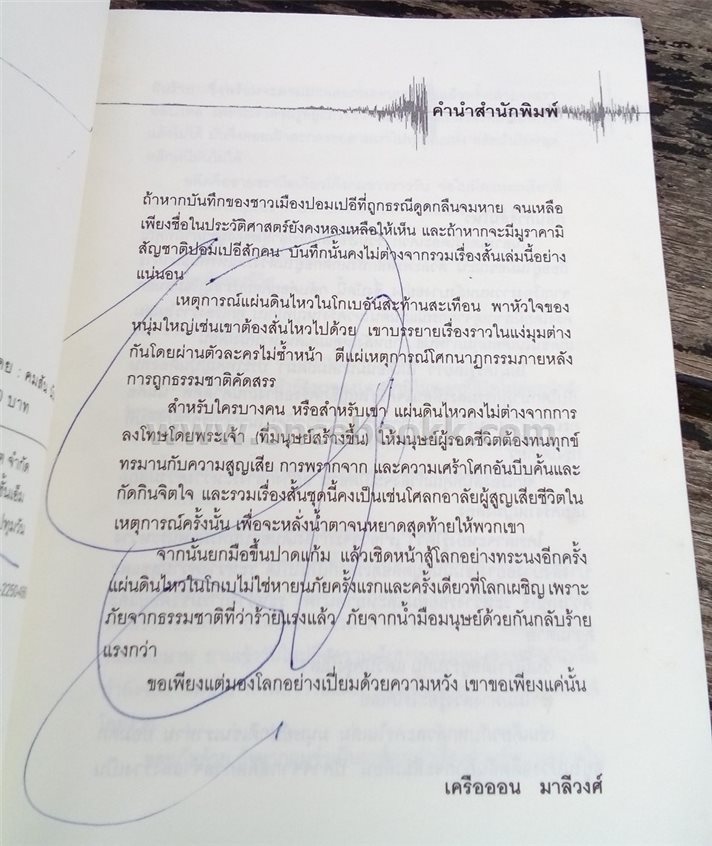 คำนำสำนักพิมพ์
ถ้าหากบันทึกของชาวเมืองปอมเปอีที่ถูกธรณีดูดกลืนจมหาย จนเหลือ
เพียงชื่อในประวัติศาสตร์ยังคงหลงเหลือให้เห็น และถ้าหากจะมีมูราคามิ
สัญชาติปอมเปอีสักคน บันทึกนั้นคงไม่ต่างจากรวมเรื่องสั้นเล่มนี้อย่าง
แน่นอน
เหตุการณ์แผ่นดินไหวในโกเบอันสะท้านสะเทือน พาหัวใจของ
หนุ่มใหญ่เช่นเขาต้องสั่นไหวไปด้วย เขาบรรยายเรื่องราวในแง่มุมต่าง
กันโดยผ่านตัวละครไม่ซ้ำหน้า ตีแผ่เหตุการณ์โศกนาฏกรรมภายหลัง
การถูกธรรมชาติคัดสรร
สำหรับใครบางคน หรือสำหรับเขา แผ่นดินไหวคงไม่ต่างจากการ
ลงโทษโดยพระเจ้า (ที่มนุษย์สร้างขึ้น) ให้มนุษย์ผู้รอดชีวิตต้องทนทุกข์
ทรมานกับความสูญเสีย การพรากจาก และความเศร้าโศกอันบีบคั้นและ
กัดกินจิตใจ และรวมเรื่องสั้นชุดนี้คงเป็นเช่นโศลกอาลัยผู้สูญเสียชีวิตใน
เหตุการณ์ครั้งนั้น เพื่อจะหลั่งน้ำตาจนหยาดสุดท้ายให้พวกเขา
จากนั้นยกมือขึ้นปาดแก้ม แล้วเชิดหน้าสู้โลกอย่างทระนงอีกครั้ง
แผ่นดินไหวในโกเบไม่ใช่หายนภัยครั้งแรกและครั้งเดียวที่โลกเผชิญ เพราะ
ภัยจากธรรมชาติที่ว่าร้ายแรงแล้ว ภัยจากน้ำมือมนุษย์ด้วยกันกลับร้าย
แรงกว่า
ขอเพียงแต่มองโลกอย่างเปี่ยมด้วยความหวัง เขาขอเพียงแค่นั้น
เครือออน มาลีวงศ์